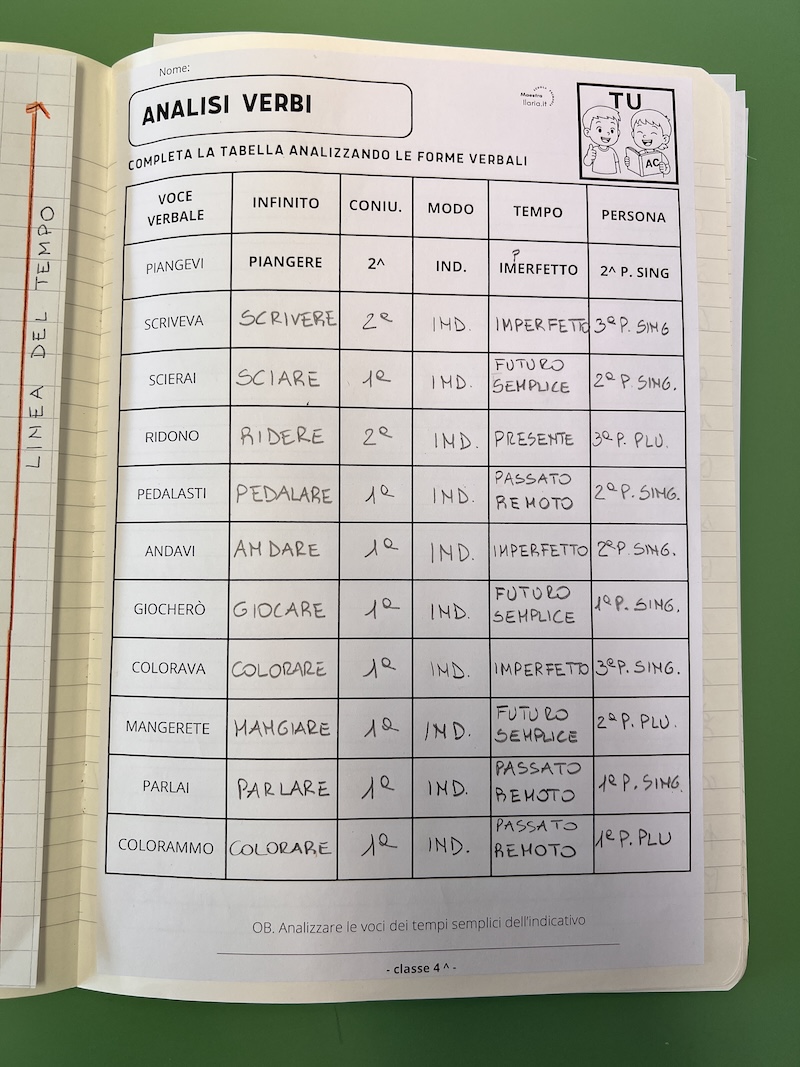 LINEA DEL TEMPO
Nome:
ANALISI VERBI
Maestra
Ilaria.it
TU
AC
COMPLETA LA TABELLA ANALIZZANDO LE FORME VERBALI
VOCE VERBALE INFINITO CONIU. MODO TEMPO PERSONA
PIANGEVI PIANGERE 2^ IND. IMPERFETTO 2^ P. SING
SCRIVEVA SCRIVERE 2ª IND. IMPERFETTO 3ª P. SING
SCIERAI SCIARE 1ª IND. FUTURO SEMPLICE 2ª P. SING.
RIDONO RIDERE 2ª IND. PRESENTE 3ª P. PLU.
PEDALASTI PEDALARE 1ª IND. PASSATO REMOTO 2ª P. SING.
ANDAVI ANDARE 1ª IND. IMPERFETTO 2ª P. SING.
GIOCHERÒ GIOCARE 1ª IND. FUTURO SEMPLICE 1ª P. SING.
COLORAVA COLORARE 1ª IND. IMPERFETTO 3ª P. SING.
MANGERETE MANGIARE 1ª IND. FUTURO SEMPLICE 2ª P. PLU.
PARLAI PARLARE 1ª IND. PASSATO REMOTO 1ª P. SING.
COLORAMMO COLORARE 1ª IND. PASSATO REMOTO 1ª P. PLU
OB. Analizzare le voci dei tempi semplici dell'indicativo
- classe 4 ^ -